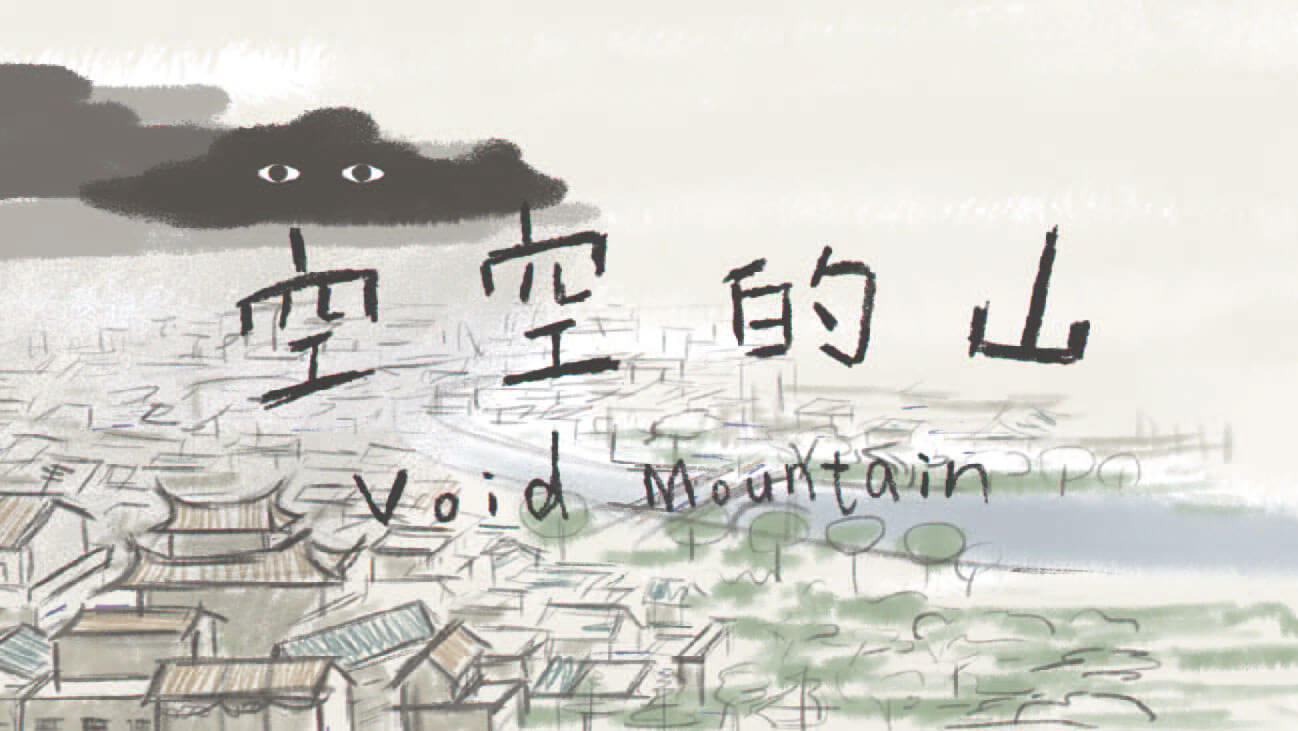 空空的山
Void Mountain